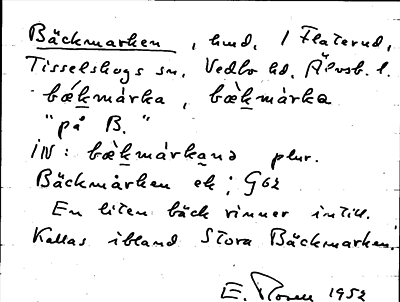 Bäckmarken, hmd. i Flaterud,
Tisselskogs sn, Vedbo hd, Älvsb. l.
bǽkmàrka, bæ̀kmárka
"på B."
iN: bæ̀kmárkana plur.
Bäckmarken ek; G62
En liten bäck rinner intill.
Kallas ibland Stora Bäckmarken.
E. 1952